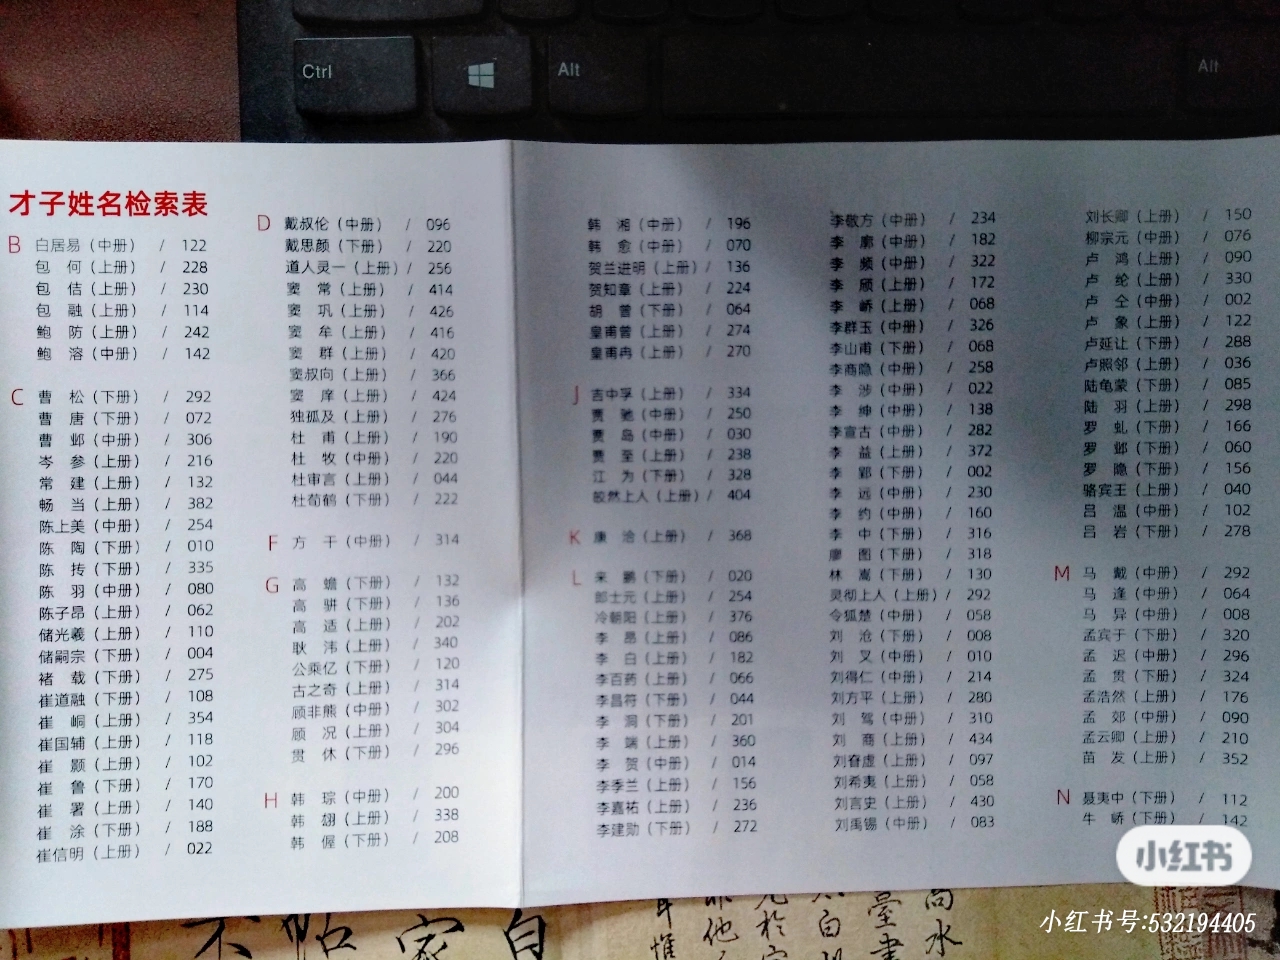 Ctrl
Alt
Alt
才子姓名检索表
B 白居易（中册） / 122
包 何（上册） / 228
包 佶（上册） / 230
包 融（上册） / 114
鲍 防（上册） / 242
鲍 溶（中册） / 142
C 曹 松（下册） / 292
曹 唐（下册） / 072
曹 邺（中册） / 306
岑 参（上册） / 216
常 建（上册） / 132
畅 当（上册） / 382
陈上美（中册） / 254
陈 陶（下册） / 010
陈 抟（下册） / 335
陈 羽（中册） / 080
陈子昂（上册） / 062
储光羲（上册） / 110
储嗣宗（下册） / 004
褚 载（下册） / 275
崔道融（下册） / 108
崔 峒（上册） / 354
崔国辅（上册） / 118
崔 颢（上册） / 102
崔 鲁（下册） / 170
崔 署（上册） / 140
崔 涂（下册） / 188
崔信明（上册） / 022
D 戴叔伦（中册） / 096
戴思颜（下册） / 220
道人灵一（上册） / 256
窦 常（上册） / 414
窦 巩（上册） / 426
窦 牟（上册） / 416
窦 群（上册） / 420
窦叔向（上册） / 366
窦 庠（上册） / 424
独孤及（上册） / 276
杜 甫（上册） / 190
杜 牧（中册） / 220
杜审言（上册） / 044
杜荀鹤（下册） / 222
F 方 干（中册） / 314
G 高 蟾（下册） / 132
高 骈（下册） / 136
高 适（上册） / 202
耿 𣲗（上册） / 340
公乘亿（下册） / 120
古之奇（上册） / 314
顾非熊（中册） / 302
顾 况（上册） / 304
贯 休（下册） / 296
H 韩 琮（中册） / 200
韩 翃（上册） / 338
韩 偓（下册） / 208
韩 湘（中册） / 196
韩 愈（中册） / 070
贺兰进明（上册） / 136
贺知章（上册） / 224
胡 曾（下册） / 064
皇甫曾（上册） / 274
皇甫冉（上册） / 270
J 吉中孚（上册） / 334
贾 驰（中册） / 250
贾 岛（中册） / 030
贾 至（上册） / 238
江 为（下册） / 328
皎然上人（上册） / 404
K 康 洽（上册） / 368
L 来 鹏（下册） / 020
郎士元（上册） / 254
冷朝阳（上册） / 376
李 昂（上册） / 086
李 白（上册） / 182
李百药（上册） / 066
李昌符（下册） / 044
李 洞（下册） / 201
李 端（上册） / 360
李 贺（中册） / 014
李季兰（上册） / 156
李嘉祐（上册） / 236
李建勋（下册） / 272
李敬方（中册） / 234
李 廓（中册） / 182
李 频（中册） / 322
李 颀（上册） / 172
李 峤（上册） / 068
李群玉（中册） / 326
李山甫（下册） / 068
李商隐（中册） / 258
李 涉（中册） / 022
李 绅（中册） / 138
李宣古（中册） / 282
李 益（上册） / 372
李 郢（下册） / 002
李 远（中册） / 230
李 约（中册） / 160
李 中（下册） / 316
廖 图（下册） / 318
林 嵩（下册） / 130
灵彻上人（上册） / 292
令狐楚（中册） / 058
刘 沧（下册） / 008
刘 叉（中册） / 010
刘得仁（中册） / 214
刘方平（上册） / 280
刘 驾（中册） / 310
刘 商（上册） / 434
刘眘虚（上册） / 097
刘希夷（上册） / 058
刘言史（上册） / 430
刘禹锡（中册） / 083
刘长卿（上册） / 150
柳宗元（中册） / 076
卢 鸿（上册） / 090
卢 纶（上册） / 330
卢 仝（中册） / 002
卢 象（上册） / 122
卢延让（下册） / 288
卢照邻（上册） / 036
陆龟蒙（下册） / 085
陆 羽（上册） / 298
罗 虬（下册） / 166
罗 邺（下册） / 060
罗 隐（下册） / 156
骆宾王（上册） / 040
吕 温（中册） / 102
吕 岩（下册） / 278
M 马 戴（中册） / 292
马 逢（中册） / 064
马 异（中册） / 008
孟宾于（下册） / 320
孟 迟（中册） / 296
孟 贯（下册） / 324
孟浩然（上册） / 176
孟 郊（中册） / 090
孟云卿（上册） / 210
苗 发（上册） / 352
N 聂夷中（下册） / 112
牛 峤（下册） / 142
小红书
小红书号:532194405